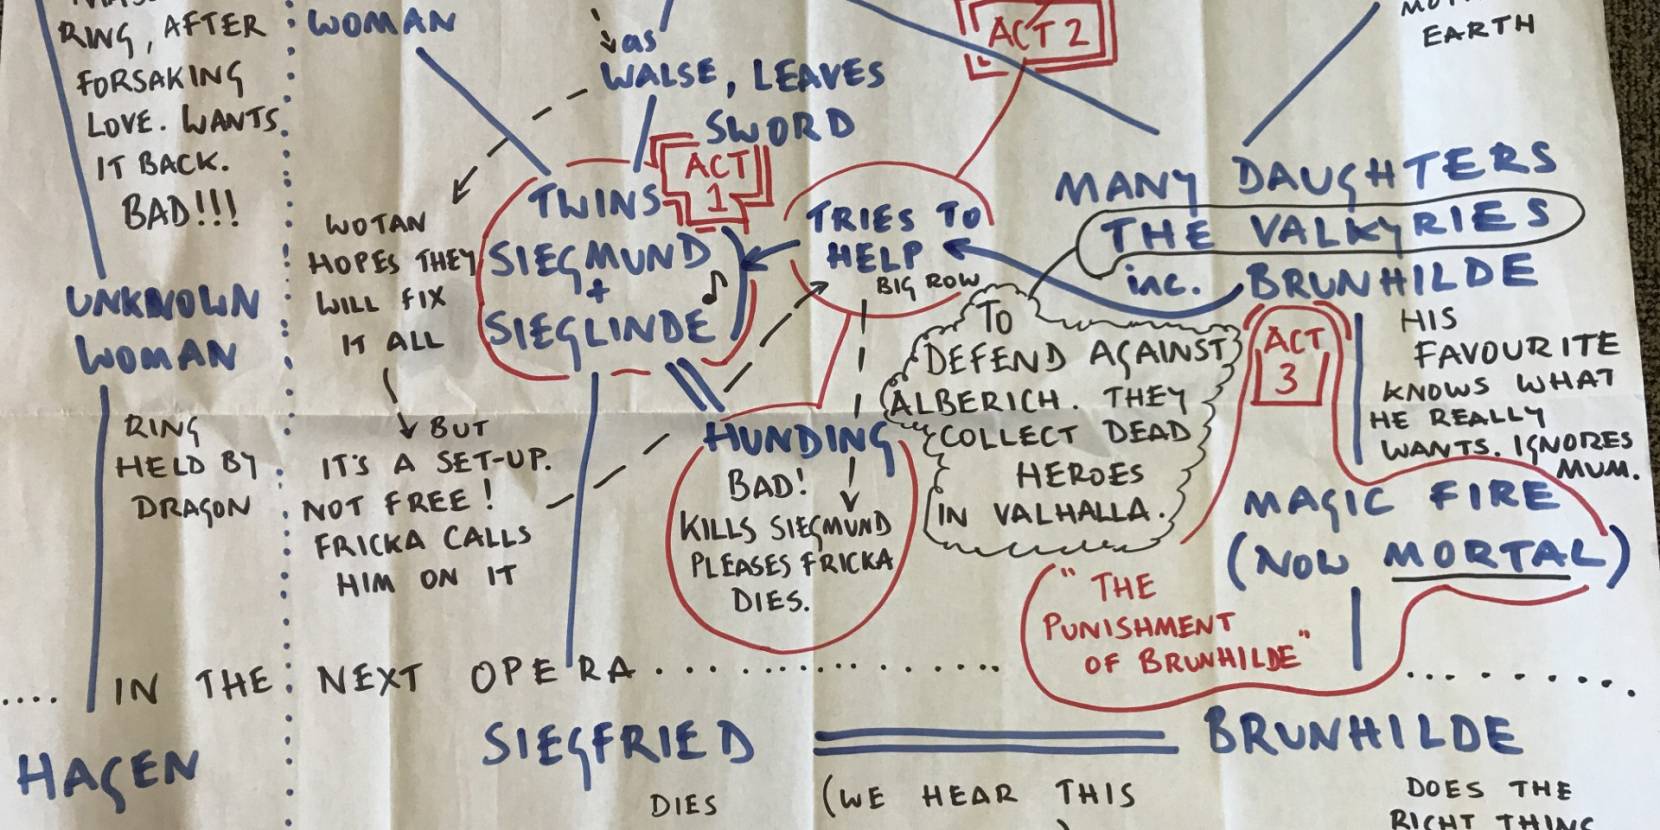 RING, AFTER
FORSAKING
LOVE. WANTS
IT BACK.
BAD!!!
UNKNOWN
WOMAN
RING
HELD BY
DRAGON
WOMAN
WOTAN
HOPES THEY
WILL FIX
IT ALL
BUT
IT'S A SET-UP.
NOT FREE!
FRICKA CALLS
HIM ON IT
as
WALSE, LEAVES
SWORD
ACT
1
TWINS
SIEGMUND
+
SIEGLINDE
ACT 2
TRIES TO
HELP
BIG ROW
HUNDING
BAD!
KILLS SIEGMUND
PLEASES FRICKA
DIES.
EARTH
MANY DAUGHTERS
THE VALKYRIES
inc. BRUNHILDE
TO
DEFEND AGAINST
ALBERICH. THEY
COLLECT DEAD
HEROES
IN VALHALLA.
ACT
3
HIS
FAVOURITE
KNOWS WHAT
HE REALLY
WANTS. IGNORES
MUM.
MAGIC FIRE
(NOW MORTAL)
"THE
PUNISHMENT
OF BRUNHILDE"
.... IN THE NEXT OPERA ....................
HAGEN
SIEGFRIED
BRUNHILDE
DIES
(WE HEAR THIS
DOES THE
RIGHT THING